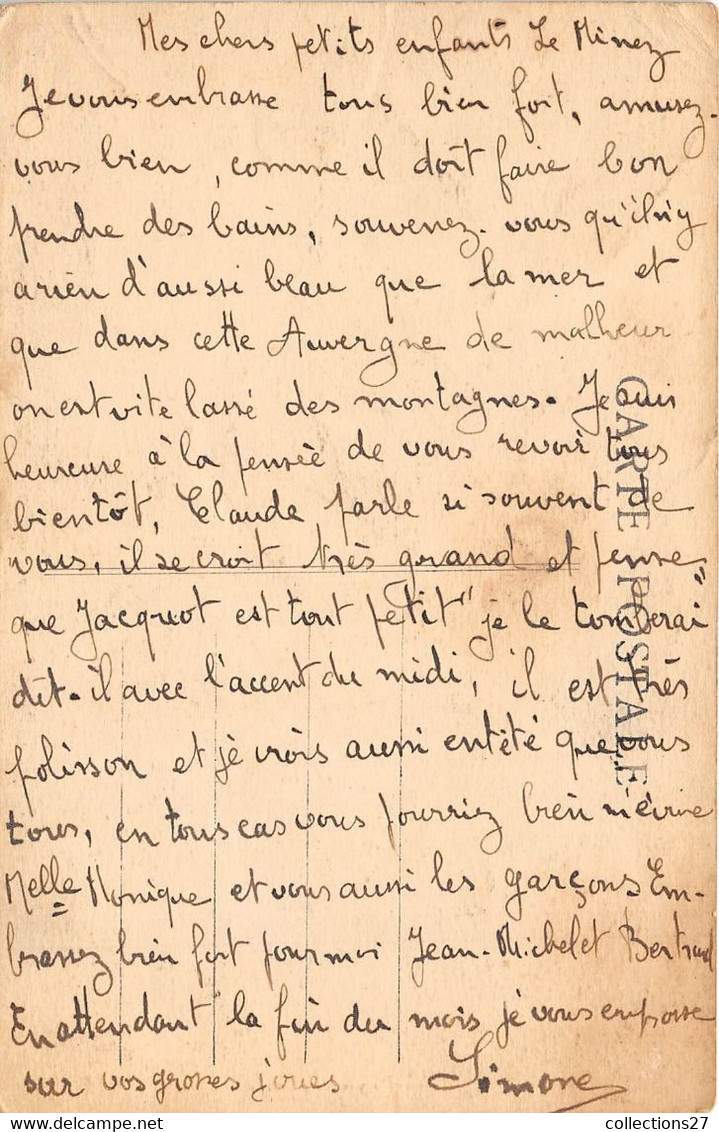 Mes chers petits enfants Le Minez
Je vous embrasse tous bien fort, amusez-
vous bien, comme il doit faire bon
prendre des bains, souvenez-vous qu'il n'y
a rien d'aussi beau que la mer et
que dans cette Auvergne de malheur
on est vite lassé des montagnes. Je suis
heureuse à la pensée de vous revoir tous
bientôt, Claude parle si souvent de
vous, il se croit très grand et pense
que Jacquot est tout petit "je le tomberai"
dit-il avec l'accent du midi, il est très
polisson et je crois aussi entêté que vous
tous, en tous cas vous pourriez bien m'écrire
Melle Monique et vous aussi les garçons Em-
brassez bien fort pour moi Jean-Michel et Bertrand
En attendant la fin du mois je vous embrasse
sur vos grosses joues Simone
CARTE POSTALE
collections27